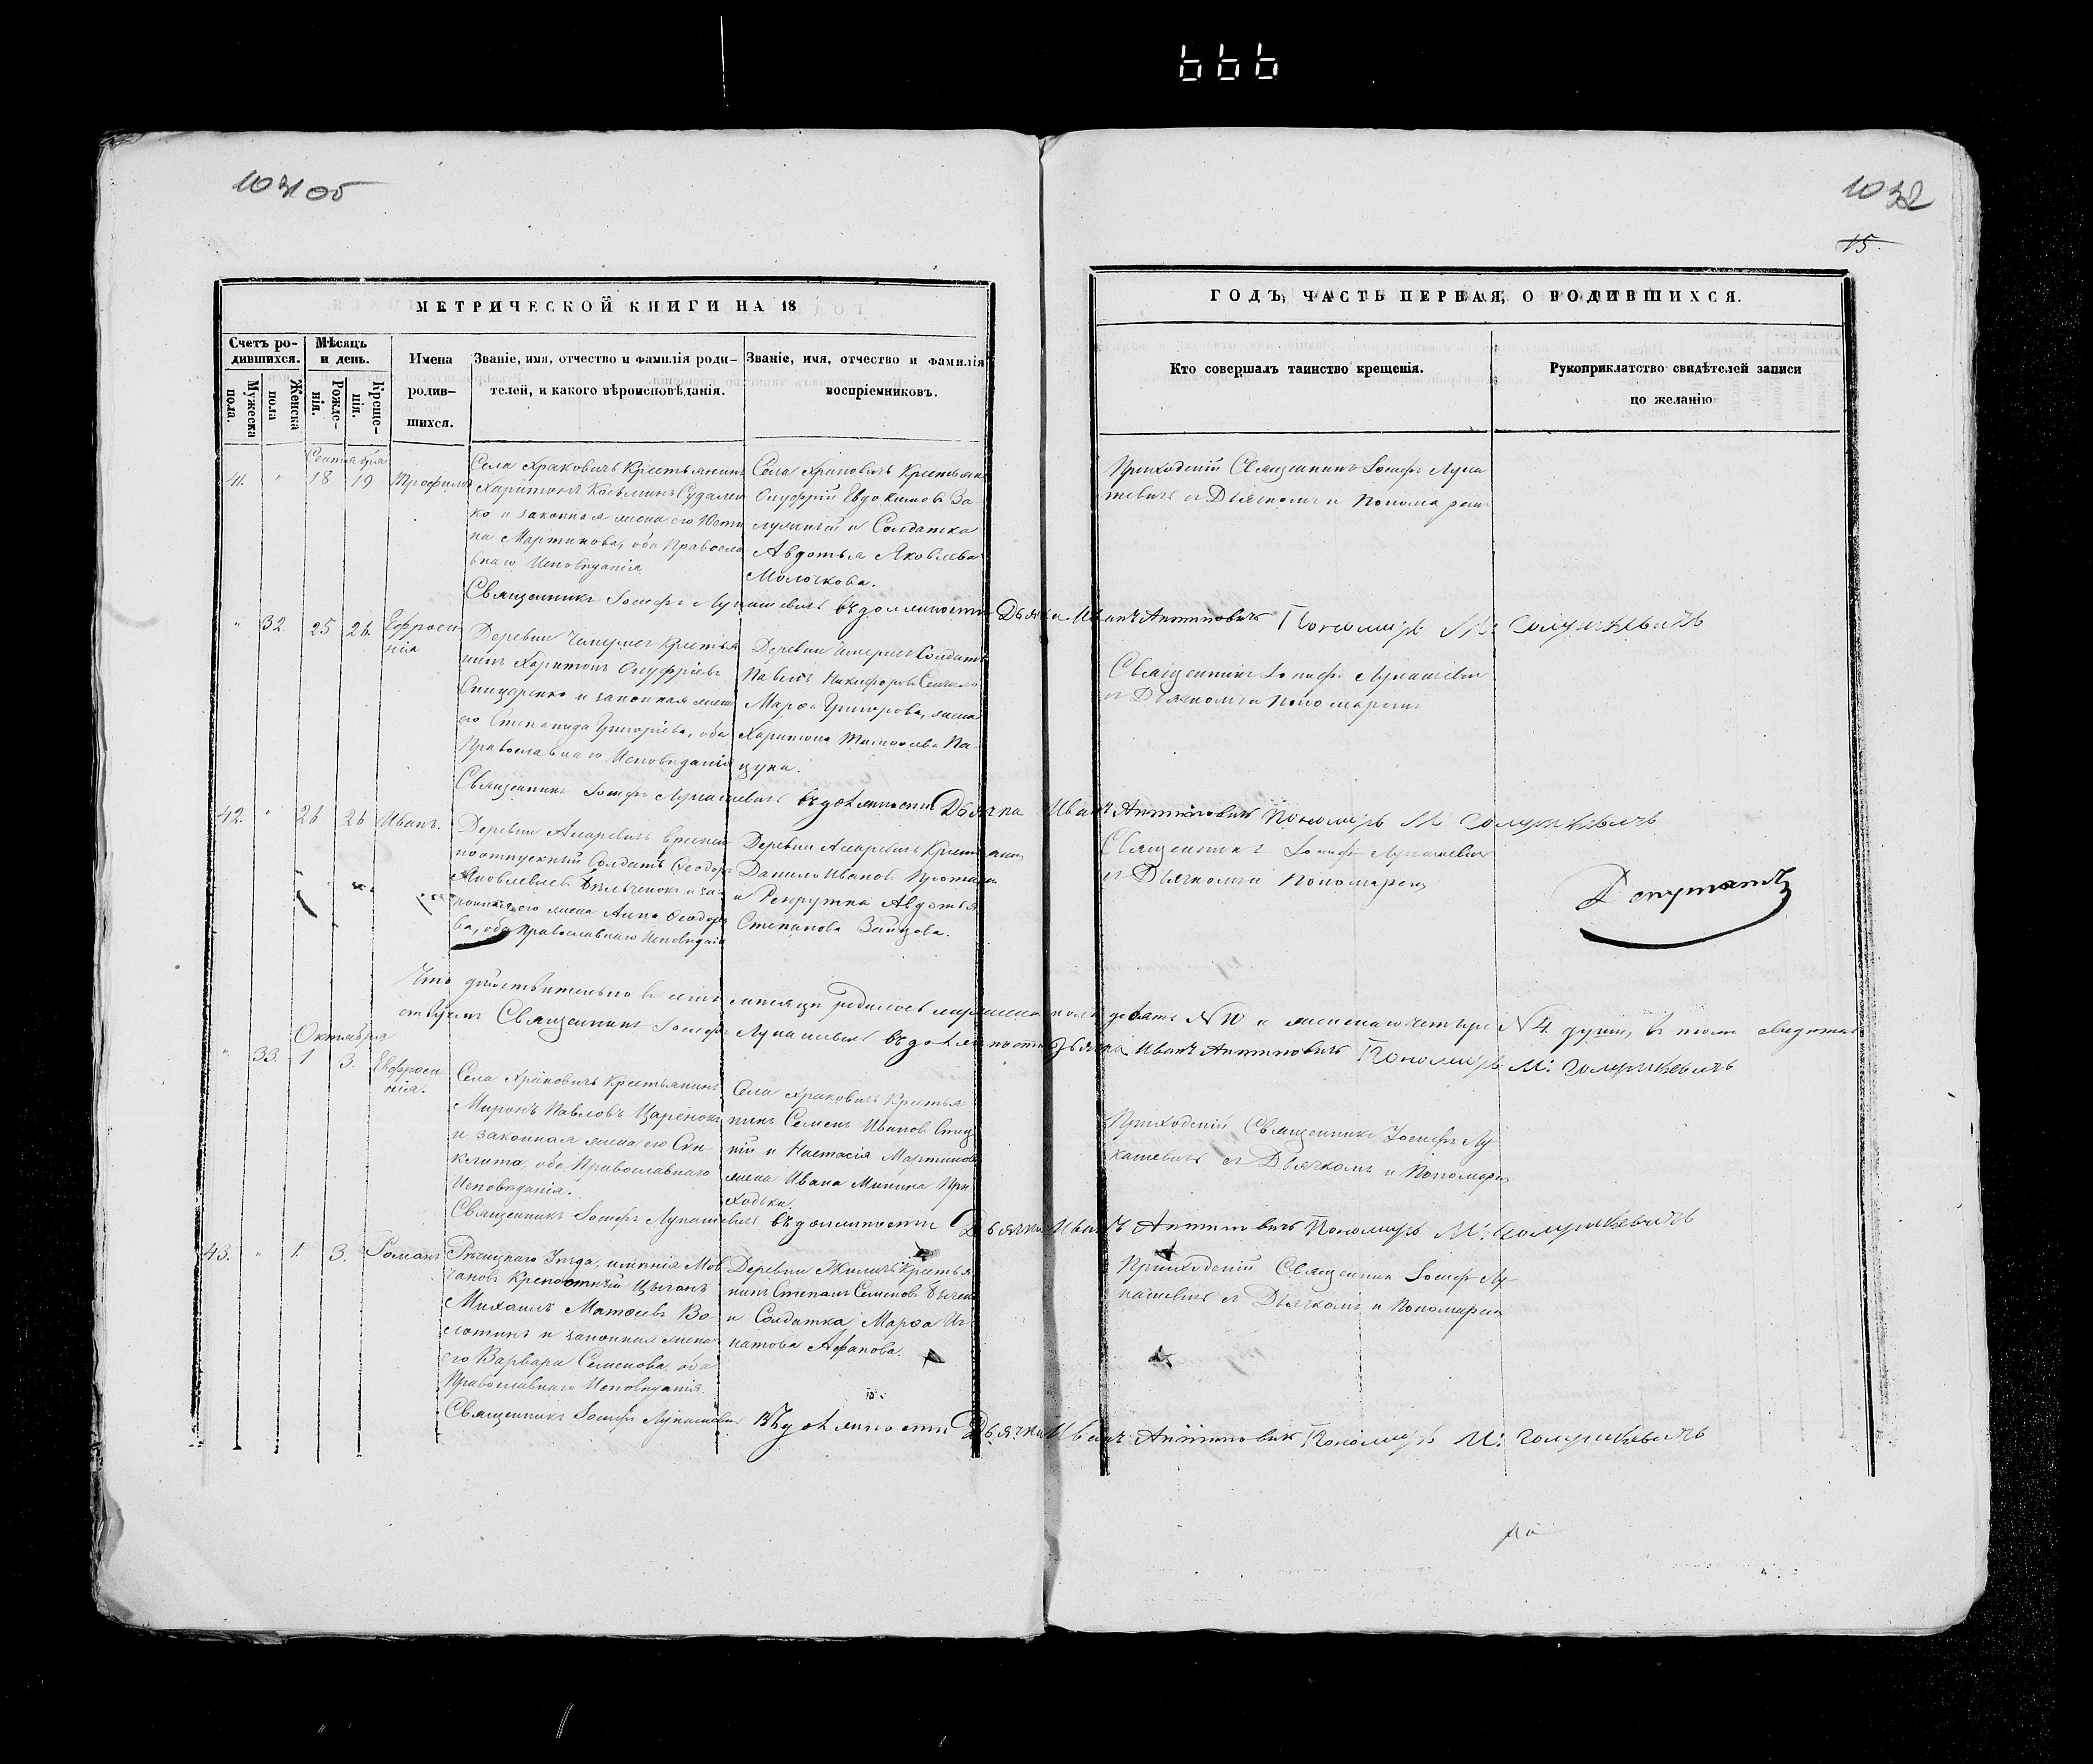 1031об
1032
15.
МЕТРИЧЕСКОЙ КНИГИ НА 18
ГОДЪ, ЧАСТЬ ПЕРВАЯ, О РОДИВШИХСЯ.
Счетъ ро-
дившихся.
Мужеска
пола.
Женска
пола
Мѣсяцъ
и день.
Рожде-
нія.
Креще-
нія.
Имена
родив-
шихся.
Званіе, имя, отчество и фамилія роди-
телей, и какого вѣроисповѣданія.
Званіе, имя, отчество и фамилія
воспріемниковъ.
Кто совершалъ таинство крещенія.
Рукоприклатство свидѣтелей записи
по желанію
Сентября
41. " 18 19 Трофимъ
Села Храковичъ Крестьянинъ
Харитонъ Козьминъ
ко и законная жена его Юсти
на Мартинова, оба Правосла
внаго Исповѣданія
Села Храковичъ Крестьян
Онуфрій Евдокимовъ За
и Солдатка
Авдотья Яковлева
Молочкова.
Приходскій Священникъ Іосифъ Лука
шевичъ съ Дьячкомъ и Пономаремъ
Священникъ Іосифъ Лукашевичъ въ должности Дьячка Иванъ Антиповичъ Пономарь М:
" 32. 25 26. Ефроси
нія
Деревни Чемерисъ Крестья
нинъ Харитонъ Онуфріевъ
и законная жена
его Степанида Григорьева, оба
Православнаго Исповѣданія
Деревни Чемерисъ Солдатъ
Павелъ Никифоровъ
Марѳа Григорова, жена
Харитона Тимоѳеева Па-
цука.
Священникъ Іосифъ Лукашевич
съ Дьячкомъ и Пономаремъ
Священникъ Іосифъ Лукашевичъ въ должности Дьячка Иванъ Антиповичъ Пономарь М
42. " 26 26 Иванъ.
Деревни Амаревичъ времен
ноотпускный Солдатъ Ѳеодоръ
Яковлевъ и за-
его жена Анна Ѳеодоро
ва, оба Православнаго Исповѣданія
Деревни Амаревичъ Крестьянинъ
Данило Ивановъ
и Рекрутка Авдотья
Степанова Зайцова.
Священникъ Іосифъ Лукашевичъ
съ Дьячкомъ и Пономаремъ
Депутатъ
Что дѣйствительно въ семъ мѣсяцѣ родилось мужеска пола девять N 10 и женскаго четыре N 4. души, въ томъ
Священникъ Іосифъ Лукашевичъ въ должности Дьячка Иванъ Антиповичъ Пономарь М:
Октября
" 33. 1 3. Евфроси
нія.
Села Храковичъ Крестьянинъ
Миронъ Павловъ Царенокъ
и законная жена его Син-
клита, оба Православнаго
Исповѣданія.
Села Храковичъ Крестья
нинъ Семенъ Ивановъ
и Настасія Мартинова
жена Ивана Минина При
ходька.
Приходскій Священникъ Іосифъ Лу-
кашевичъ съ Дьячкомъ и Пономаремъ
Священникъ Іосифъ Лукашевичъ въ должности Дьячка Иванъ Антиповичъ Пономарь М:
43. " 1. 3. Романъ
Рѣчицкаго Уѣзда, имѣнія Мол
чановъ Крепостный Цыганъ
Михаилъ Матѳеевъ
и законная жена
его Варвара Семенова, оба
Православнаго Исповѣданія.
Деревни Крестья
нинъ Степанъ Семеновъ
и Солдатка Марѳа Иг
натова Афанова.
Приходскій Священник Іосифъ Лу-
кашевичъ съ Дьячкомъ и Пономаремъ
Священникъ Іосифъ Лукашевичъ Въ должности Дьячка Иванъ Антиповичъ Пономарь М: